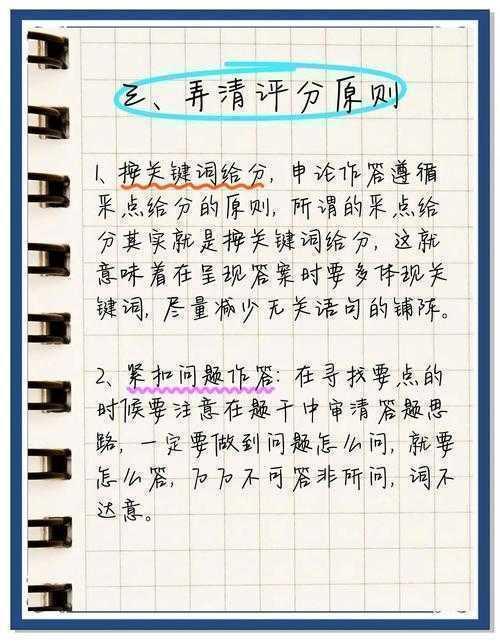 三、弄清评分原则
1、按关键词给分，申论作答遵循
采点给分的原则，所谓的采点给
分其实就是按关键词给分，这就
意味着在呈现答案时要多体现关
键词，尽量减少无关语句的铺陈。
2、紧扣问题作答：在寻找要点的
时候要注意在题干中审清答题思
路，一定要做到问题怎么问，就要
怎么答，万万不可答非所问，词不
达意。